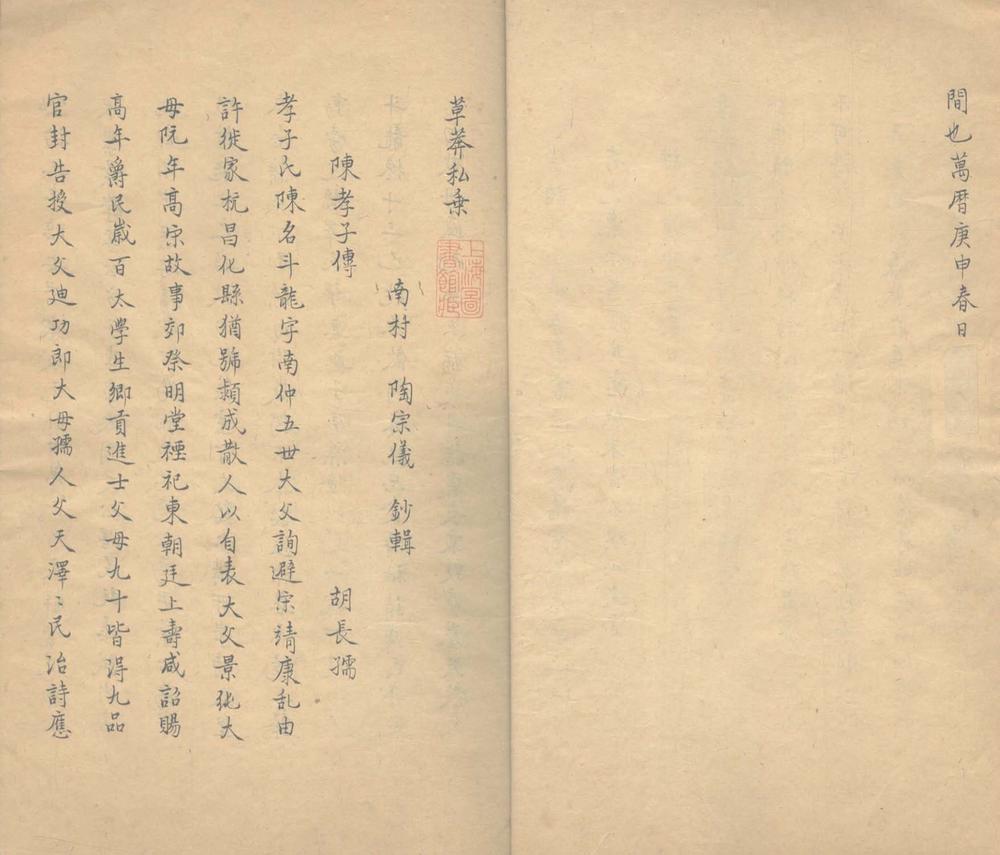 間也萬曆庚申春日
草莽私乗
上海圖書館藏
南村 陶宗儀 鈔輯
陳孝子傳 胡長孺
孝子氏陳名斗龍字南仲五世大父詢避宋靖康乱由
許徙家杭昌化縣猶號頴成散人以自表大父景純大
母阮年髙宋故事郊祭明堂禋祀東朝廷上壽咸詔賜
髙年爵民歳百太學生鄉貢進士父母九十皆淂九品
官封告授大父廸功郎大母孺人父天澤〻民治詩應